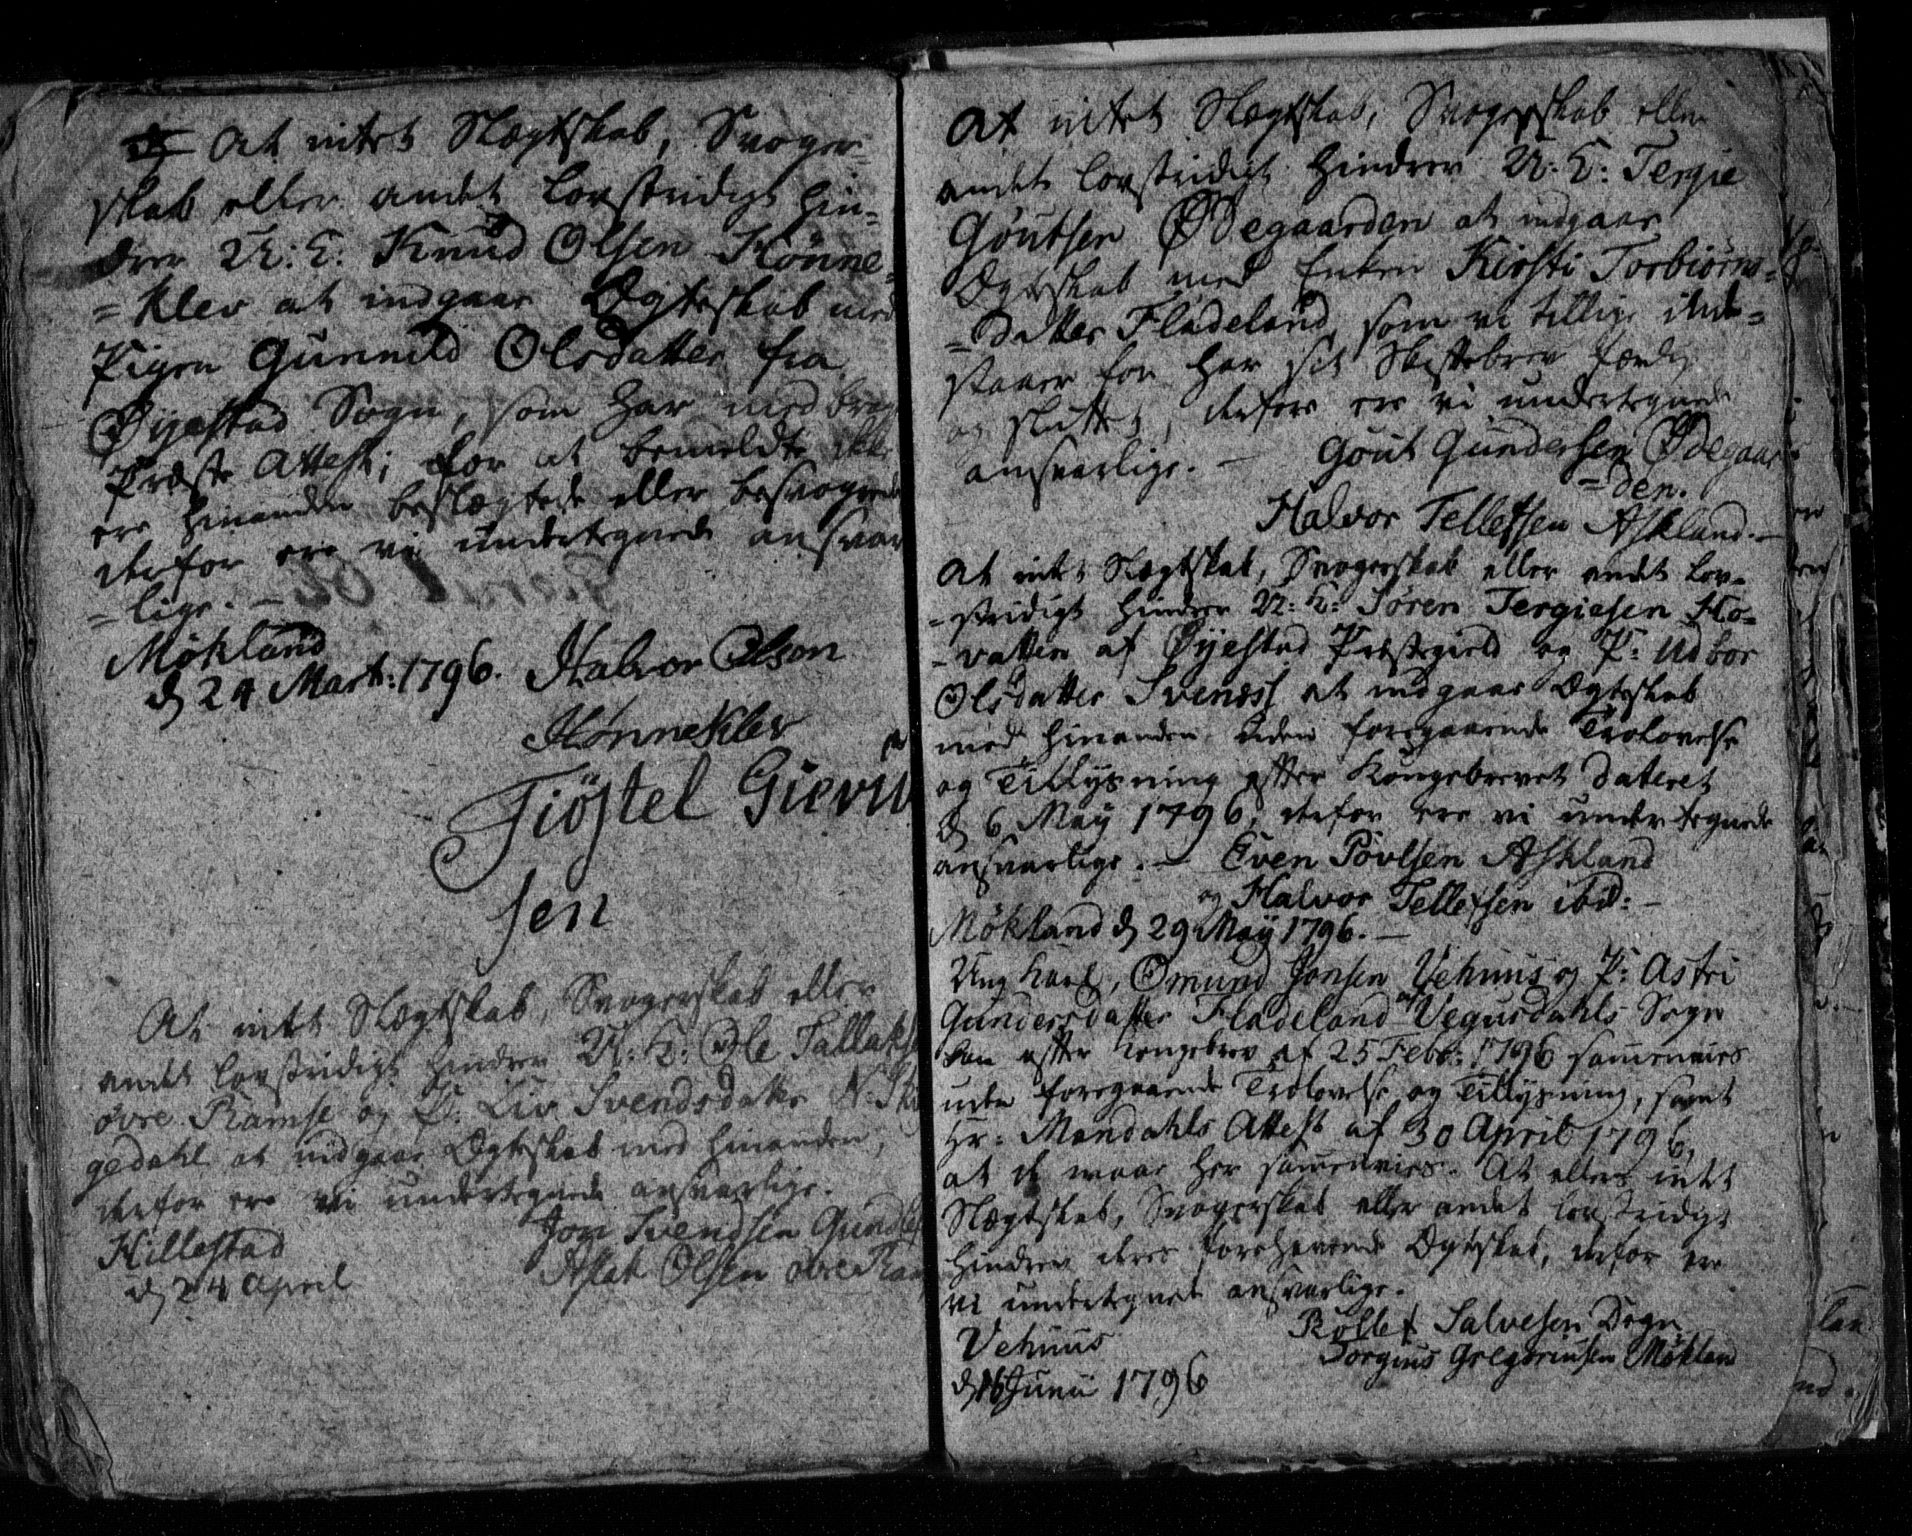 At intet Slægtskab, Svoger=
skab eller andet lovstridigt hin=
drer U: K: Knud Olsen Hønne=
=klev at indgaae Ægteskab med
Pigen Gunnild Olsdatter fra
Øyestad Sogn, som har medbragt
Præste Attest; for at bemeldte ikke
ere hinanden beslægtede eller besvogrede
derfor ere vi undertegnede ansvar
=lige. —
Møkland
d 24 Mart: 1796. Halvor Olson
Hønneklev
Tiøstel Giervu
sen
At intet Slægtskab, Svogerskab eller
andet lovstridigt hindrer U: K: Ole Tallaks
øvre Ramse og P: Liv Svendsdatter N: Ski
gedahl at indgaae Ægteskab med hinanden,
derfor ere vi undertegnede ansvarlige.
Hillestad
d 24 April
Jon Svendsen
Aslak Olsen øvre Ram
At intet Slægtskab, Svogerskab eller
andet lovstridigt hindrer U: K: Tergie
Goutsen Ødegaarden at indgaae
Ægteskab med Enken Kirsti Torbiørns=
=datter Fladeland, som vi tillige inde=
staaer for har sit Skiftebrev færdig
og sluttet, derfore ere vi undertegnede
ansvarlige. — Gout Gundersen Ødegaar
=den.
Halvor Tellefsen Askland. —
At intet Slægtskab, Svogerskab eller andet lov=
=stridigt hindrer U: K: Søren Tergiesen Ho=
=vatten af Øyestad Præstegield og P: Udbor
Olsdatter Svenøss at indgaae Ægteskab
med hinanden uden foregaaende Trolovelse
og Tillysning efter Kongebrevet dateret
d 6 May 1796, derfor ere vi undertegnede
ansvarlige. — Even Povlsen Askland
og Halvor Tellefsen ibid: —
Møkland d 29 May 1796. —
Ung karl, Omund Jonsen Vehuus og P: Astri
Gundersdatter Fladeland af Vegusdahls Sogn
kan efter kongebrev af 25 Febr: 1796 sammenvies
uden foregaaende Trolovelse og Tillysning, samt
Hr: Mandahls Attest af 30 April 1796,
at de maae her sammenvies. At ellers intet
Slægtskab, Svogerskab eller andet lovstridigt
hindrer deres forehavende Ægteskab, derfor ere
vi undertegnede ansvarlige.
Vehuus
d 16 Junii 1796
Rollef Salvesen Dogn
Torgius Gregoriusen Møkland